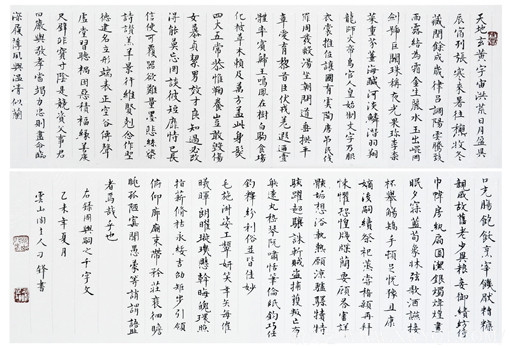 天地玄黃宇宙洪荒日月盈昃
辰宿列張寒來暑往秋收冬
藏閏餘成歲律呂調陽雲騰致
雨露結為霜金生麗水玉出崐岡
劍號巨闕珠稱夜光果珍李柰
菜重芥薑海鹹河淡鱗潛羽翔
龍師火帝鳥官人皇始制文字乃服
衣裳推位讓國有虞陶唐吊民伐
罪周發殷湯坐朝問道垂拱平
章愛育黎首臣伏戎羌遐邇壹
體率賓歸王鳴鳳在樹白駒食場
化被草木賴及萬方蓋此身髮
四大五常恭惟鞠養豈敢毀傷
女慕貞絜男效才良知過必改
得能莫忘罔談彼短靡恃己長
信使可覆器欲難量墨悲絲染
詩讚羔羊景行維賢剋念作聖
德建名立形端表正空谷傳聲
虛堂習聽禍因惡積福緣善慶
尺璧非寶寸陰是競資父事君
曰嚴與敬孝當竭力忠則盡命臨
深履薄夙興溫凊似蘭
口充腸飽飫烹宰饑厭糟糠
親戚故舊老少異糧妾御績紡侍
巾帷房紈扇圓潔銀燭煒煌晝
眠夕寐藍筍象床弦歌酒讌接
杯舉觴矯手頓足悅豫且康
嫡後嗣續祭祀蒸嘗稽顙再拜
悚懼恐惶牋牒簡要顧答審詳
骸垢想浴執熱願涼驢騾犢特
駭躍超驤誅斬賊盜捕獲叛亡布
射遼丸嵇琴阮嘯恬筆倫紙鈞巧任
釣釋紛利俗並皆佳妙
毛施淑姿工顰妍笑年矢每催
曦暉朗曜璇璣懸斡晦魄環照
指薪修祜永綏吉劭矩步引領
俯仰廊廟束帶矜莊徘徊瞻
眺孤陋寡聞愚蒙等誚謂語助
者焉哉乎也
右錄周興嗣之千字文
乙未年夏月
雲山閒人刁鋒書